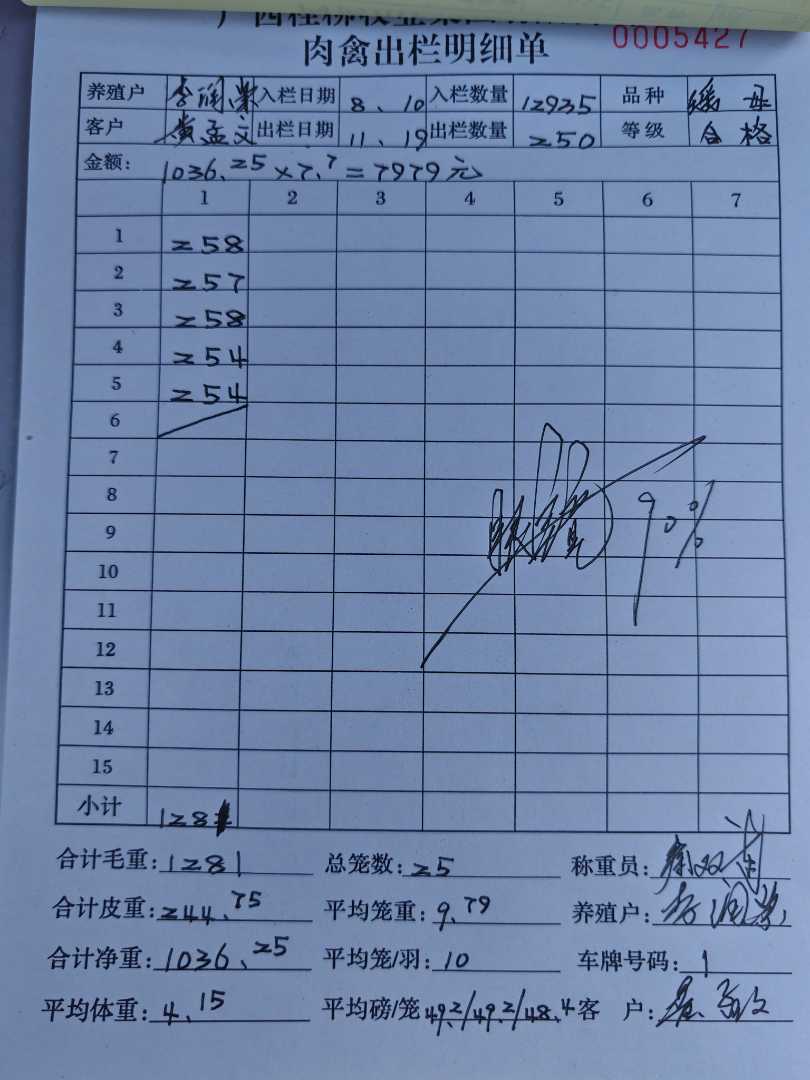 肉禽出栏明细单
0005427
养殖户 李润荣 入栏日期 8、10 入栏数量 12935 品种
客户 黄孟文 出栏日期 11、19 出栏数量 250 等级 合格
金额: 1036.25×7.7=7979元
1 2 3 4 5 6 7
1 258
2 257
3 258
4 254
5 254
6
7
8
9 90%
10
11
12
13
14
15
小计 1281
合计毛重:1281 总笼数:25 称重员:
合计皮重:244.75 平均笼重:9.79 养殖户:李润荣
合计净重:1036.25 平均笼/羽:10 车牌号码:1
平均体重:4.15 平均磅/笼 49.2/49.2/48.4 客 户: